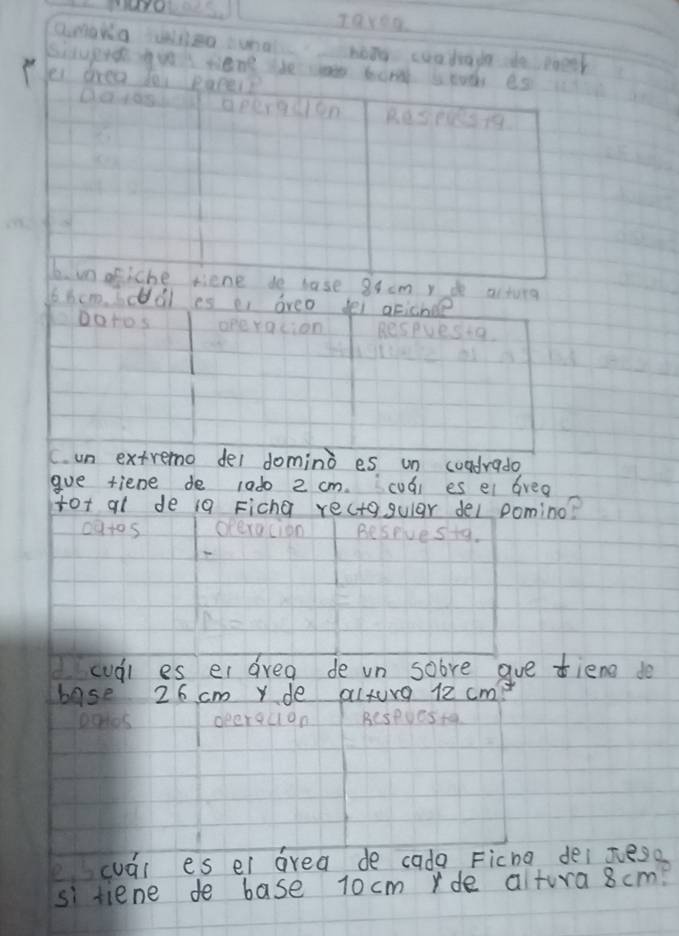 Tarea
una hoja cuadrada de
que tiene de
el área del
Datos operación Respuesta
b. un afiche tiene de base 84 cm y de altura
cm. ¿cuál es el área del afiche?
Datos operación Respuesta
C. un extremo del dominó es un cuadrado
que tiene de lado 2 cm. ¿cuál es el área
total de la Ficha rectagular del Domino?
Datos Operación Respuesta.
d. ¿cuál es el área de un sobre que tiene de
base 26 cm y de altura 12 cm?
Datos operación Respuesta
e. ¿cuál es el área de cada Ficha del
si tiene de base 10 cm y de altura 8 cm?